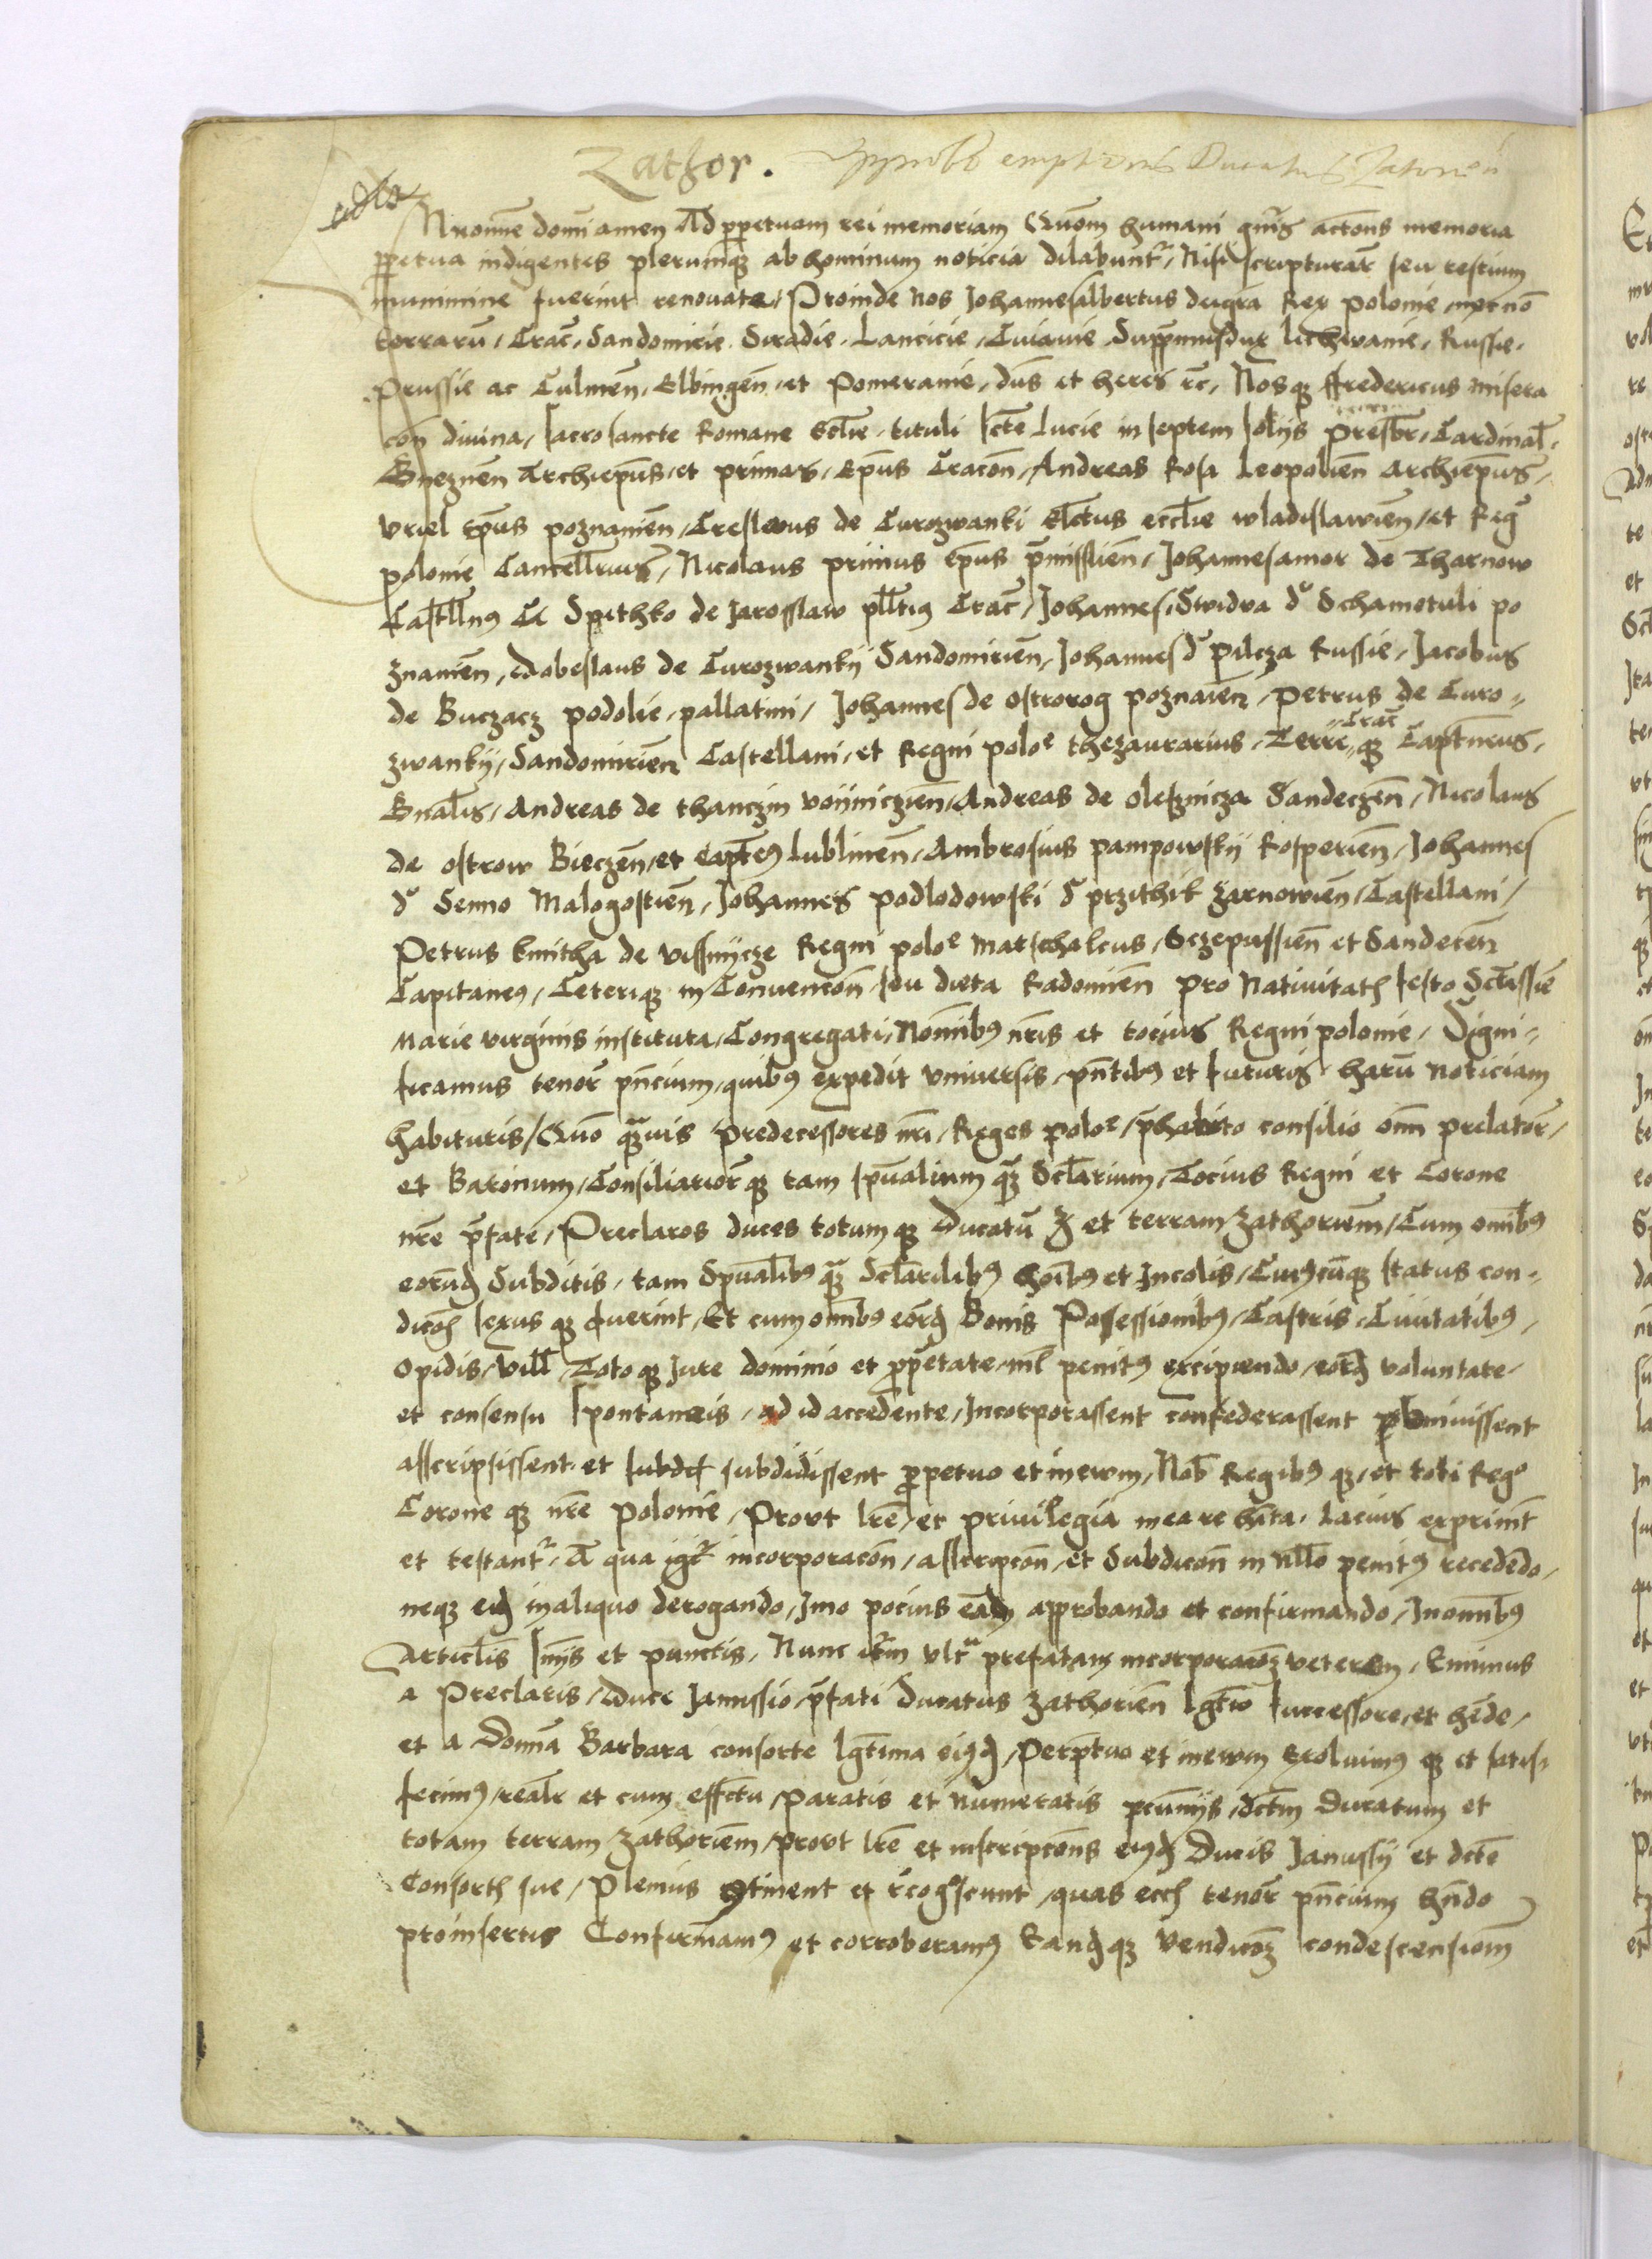 Zathor. Approbo emptionis Ducatus Zatorien
Nnomine domi amen Ad perpetuam rei memoriam Quom humani gnis actons memoria
perpetua indigentes plerumque ab hominum noticia dilabuntr, Nisi scripturar seu testium
munimine fuerint renouate, Proinde Nos Johannesalbertus deigra Rex polonie necno
terraru, Crac, Sandomirie Siradie, Lancicie, Cuiauie Suppremusdux lithwanie, Russie,
Prussie ac Culmen, Elbingen, et Pomeranie, dus et heres rc, Nosque ffredericus misera
con diuina, sacrosancte Romane Eclie, tituli scte Lucie in septem soliis presbr, Cardinal,
Gneznen Archiepus, et primas, Epus Cracon, Andreas Rosa Leopolien Archiepus,
Vriel Epus poznanien, Creslaus de Curozwanki Elctus ecclie wladislawien, et Regni
polonie Cancellrius, Nicolaus primus Epus pmisslien, Johannesamor de Tharnow
Castllnus Spithko de Jarosslaw plltius Crac, Johannes Swidwa de Schamotuli po
znanien, Dobeslaus de Curozwankij Sandomirien, Johannes de pilcza Russie, Jacobus
de Buczacz podolie, pallatini, Johannes de ostrorog poznanien, Petrus de Curo
zwankij, Sandomirien Castellani, et Regni poloe thezaurarius, Terre Crac que Captneus,
Gnalis, Andreas de thanczin voiniczien, Andreas de olesznicza Sandeczen, Nicolaus
de ostrow Bieczen, et Captes lublinen, Ambrosius pampowskij Rosperien, Johannes
de Senno Malogostien, Johannes podlodowski de przithik zarnowien, Castellani,
Petrus kmitha de vissnijcze Regni poloe Marschalcus, Sczepussien et Sandecen
Capitaneus, Ceterique in Conuencon seu dieta Radomien pro Natiuitatis festo Sctissie
Marie virginis instituta, Congregati, Nominibus nris et tocius Regni polonie, Signi
ficamus tenor pncium, quibus expedit vniuersis, pntibus et futuris, haru noticiam
habituris, Quo quauis predecessores nri, Reges poloe, phabito consilio oim prelator,
et Baronum, Consiliariorque tam spualium qua Sclarium, Tocius Regni et Corone
nre pfate, Preclaros duces totumque Ducatu et terram Zathoriem, Cum omibus
eorud Subditis, tam Spualibus qua Sclaribus hoibus et Incolis, Cuiuscuque status con
dicois sexus que fuerint, Et cum omibus eord Bonis Possessionibus, Castris Ciuitatibus,
opidis, vill Totoque Jure dominio et ppetate, nil penitus excipiendo, eord voluntate,
et consensu spontaneis, ad id accedente, Incorporassent confederassent vnniuissent
asscripsissent, et subdidissent perpetuo et ineuum, Nob Regibus que, et toti Rego
Coroneque nre polonie, Prout lre, et priuilegia inea re hita, Lacius exprimt
et testantr, A qua igitr incorporacon, asscripcon, et Subdicon in nllo penitus recededo,
neque eid inaliquo derogando, Imo pocius eadm approbando et confirmando, In omnibus
Articlis snijs et punctis, Nunc itrm vltra prefatam incorporacom veterem, Emimus
a Preclaris, Duce Janussio, pfati Ducatus zathorien lgtio successore, et hede,
et a Domna Barbara consorte lgtima eiusd, Perptuo et ineuum Exoluimusque et satis
fecimus, realr et cum effctu, paratis et numeratis pcunijs, dctm ducatum et
totam terram zathoriem, prout lre et inscripcons eiusd Ducis Janussij et dcte
Consortis sue, Plenius contiment et recogoscunt, quas eciam tenor pncium hndo
proinsertis Confirmamus et corroboramus Eandque vendicom condescensiom